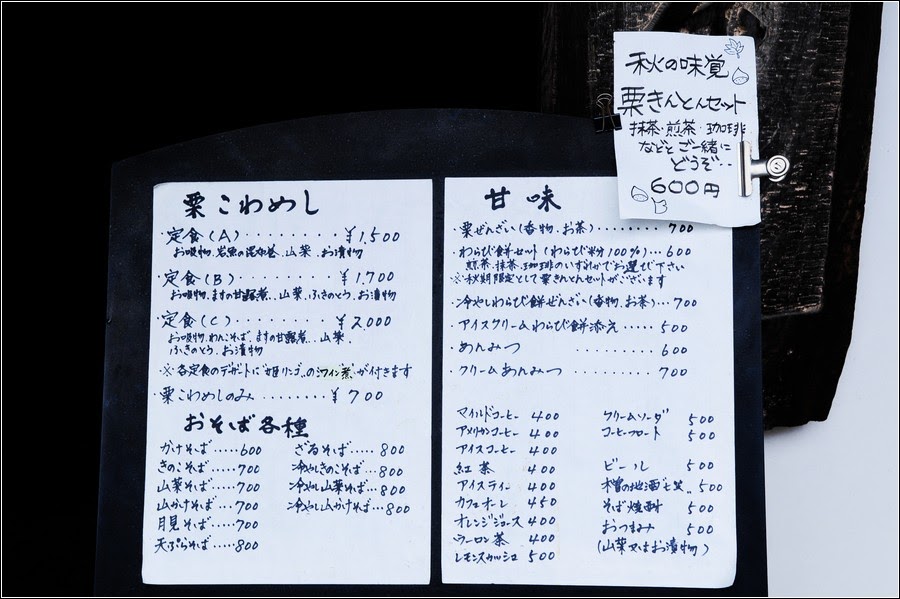 秋の味覚
栗きんとんセット
抹茶・煎茶・珈琲
などとご一緒に
どうぞ‥
600円
栗こわめし
・定食(A)........¥1,500
お吸物、岩魚の昆布巻、山菜、お漬物
・定食(B)........¥1,700
お吸物、ますの甘露煮、山菜、ふきのとう、お漬物
・定食(C)........¥2,000
お吸物、わんこそば、ますの甘露煮、山菜、
ふきのとう、お漬物
※各定食のデザートに"姫リンゴ"の"ワイン煮"が付きます
・栗こわめしのみ........¥700
おそば各種
かけそば.....600
きのこそば.....700
山菜そば.....700
山かけそば....700
月見そば.....700
天ぷらそば....800
ざるそば.....800
冷やしきのこそば...800
冷やし山菜そば...800
冷やし山かけそば...800
甘味
・栗ぜんざい(香物、お茶)........700
・わらび餅セット(わらび粉100%)...600
煎茶、抹茶、珈琲のいずれかでお選び下さい
※秋期限定として栗きんとんセットがございます
・冷やしわらび餅ぜんざい(香物、お茶)...700
・アイスクリームわらび餅添え.....500
・あんみつ.........600
・クリームあんみつ.........700
マイルドコーヒー 400
アメリカンコーヒー 400
アイスコーヒー 400
紅茶 400
アイスティー 400
カフェオーレ 450
オレンジジュース 400
ウーロン茶 400
レモンスカッシュ 500
クリームソーダ 500
コーヒーフロート 500
ビール 500
木曽の地酒"七笑"..500
そば焼酎 500
おつまみ 500
(山菜又はお漬物)